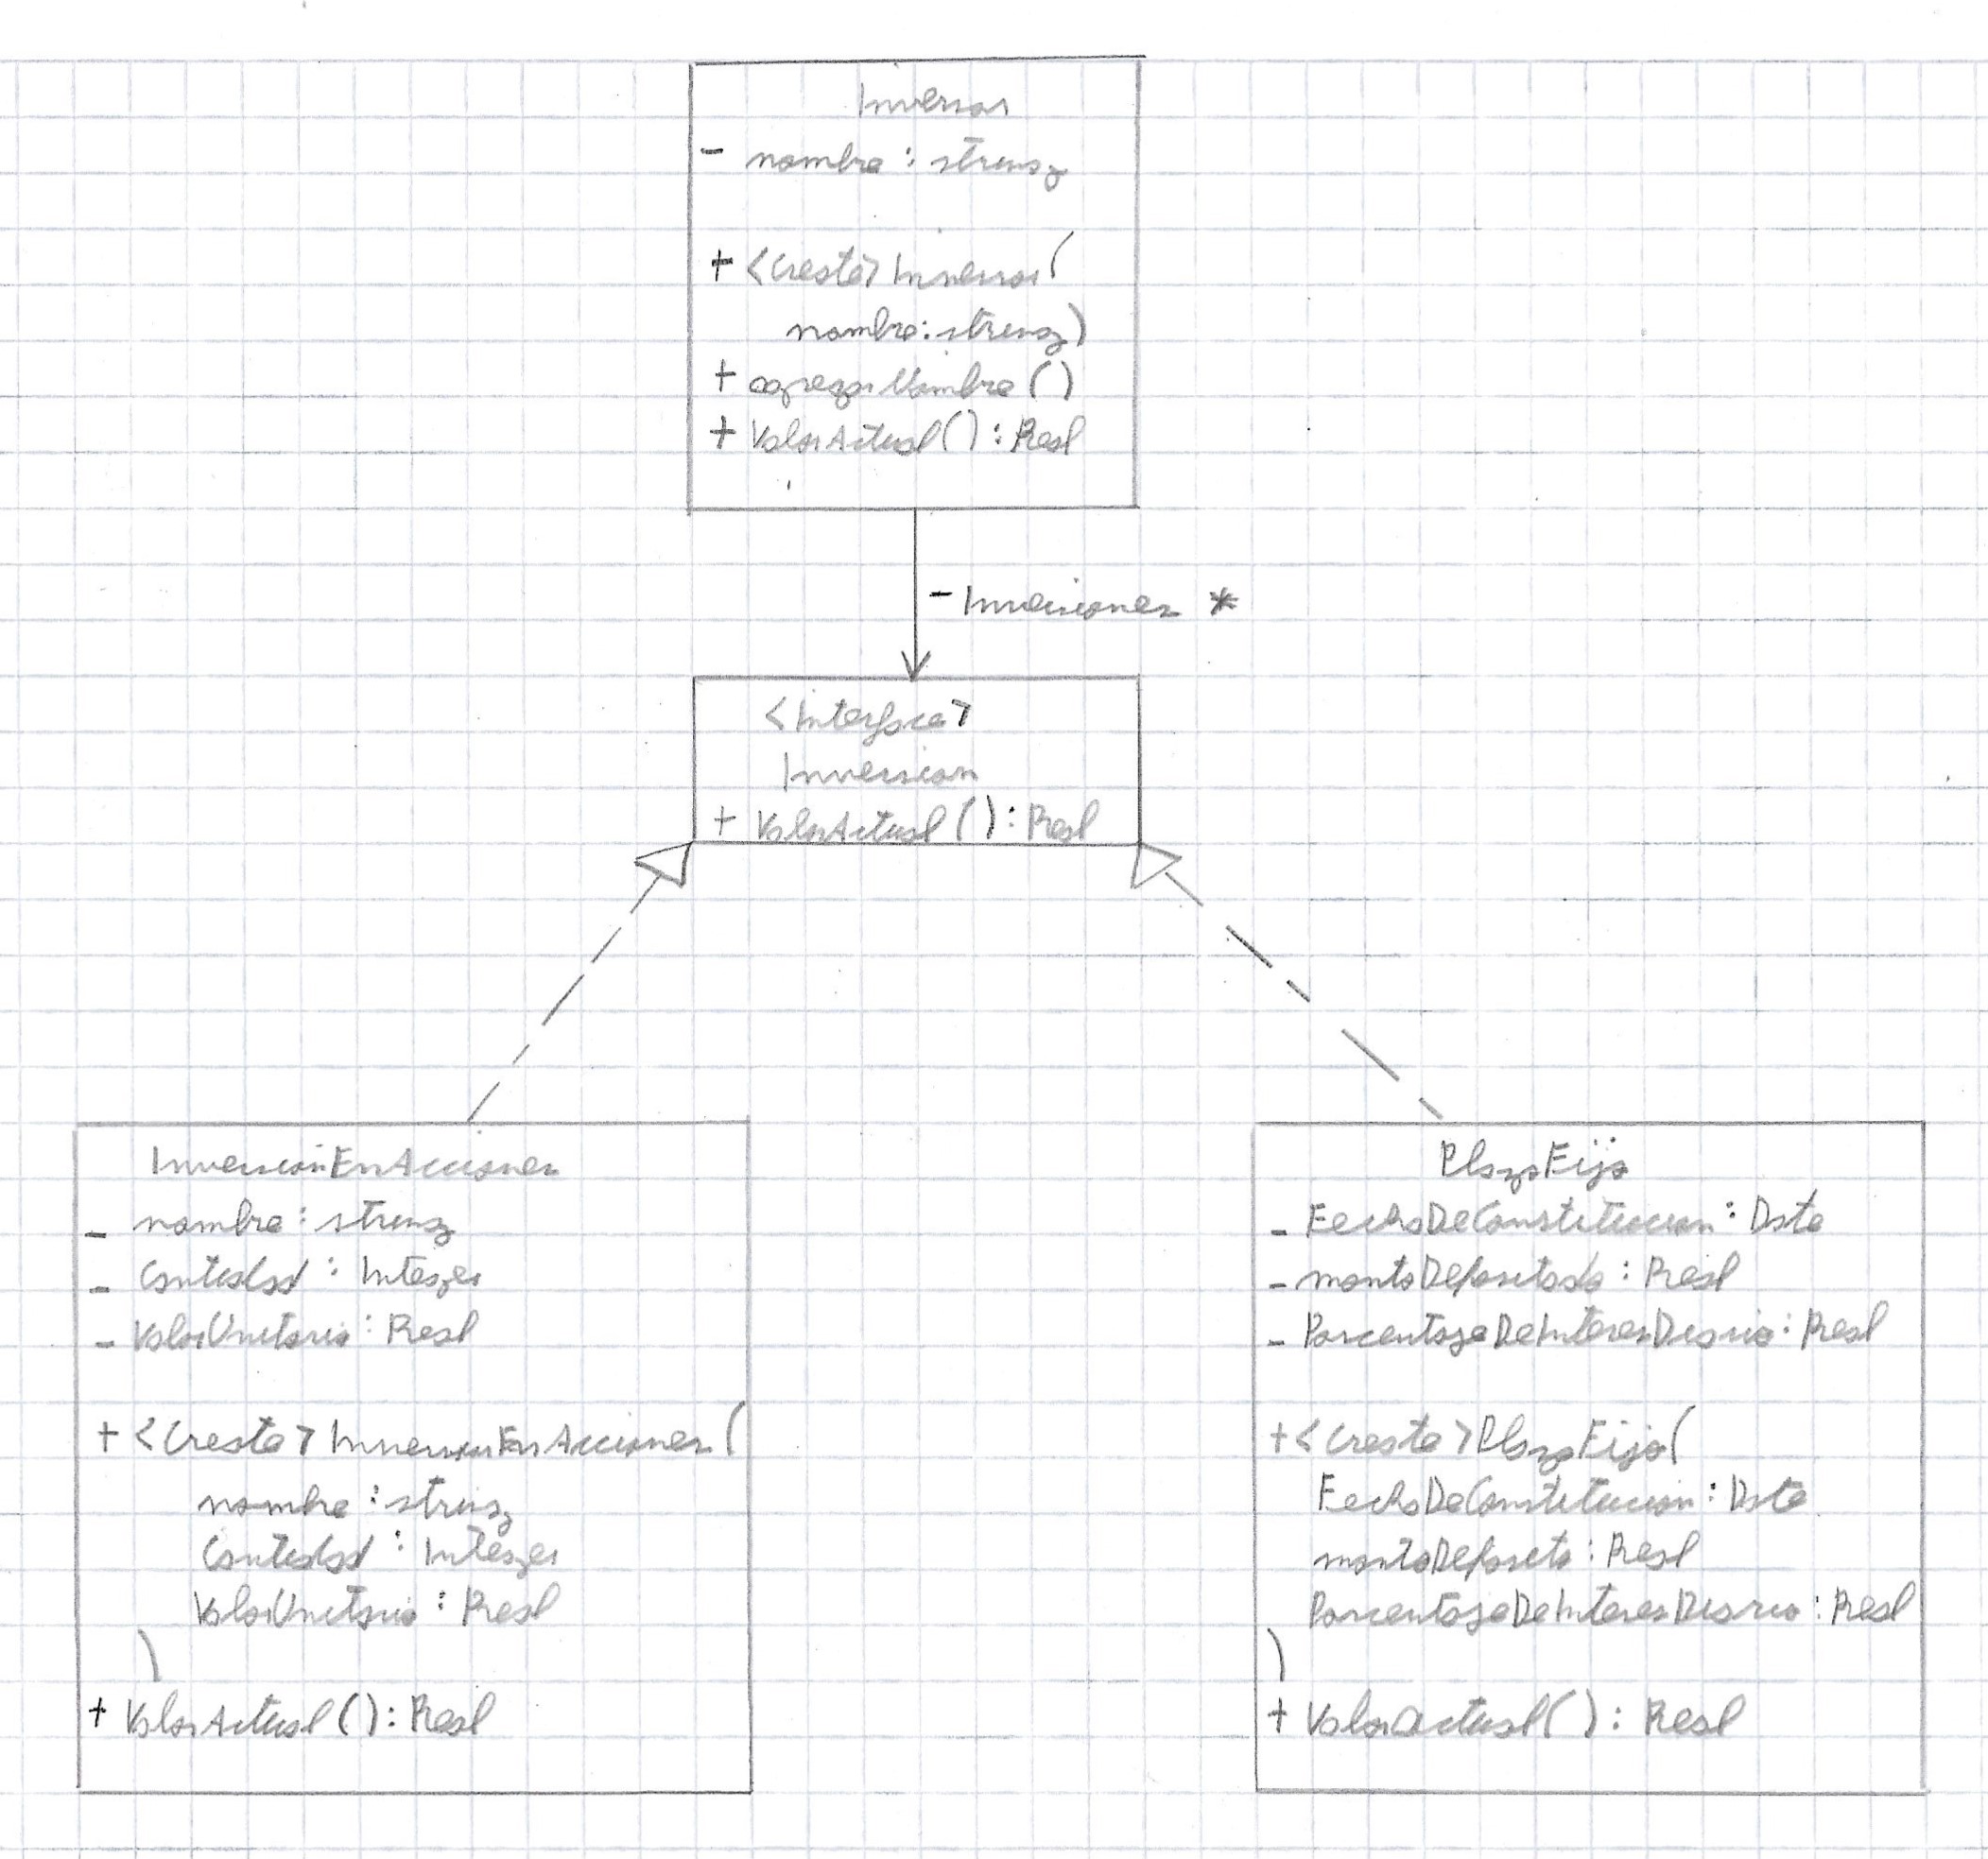 Inversor
- nombre : string
+ <create> Inversor(
nombre: string)
+ agregarNombre ()
+ ValorActual() : Real
- Inversiones *
<Interface>
Inversion
+ ValorActual () : Real
InversionEnAcciones
- nombre : string
- Cantidad : Integer
- ValorUnitario : Real
+ <Create> InversionEnAcciones (
nombre : string
Cantidad : Integer
ValorUnitario : Real
)
+ ValorActual () : Real
PlazoFijo
- FechaDeConstitucion : Date
- montoDepositado : Real
- PorcentajeDeInteresDiario : Real
+ <create> PlazoFijo(
FechaDeConstitucion : Date
montoDeposito : Real
PorcentajeDeInteresDiario : Real
)
+ Valoractual() : Real